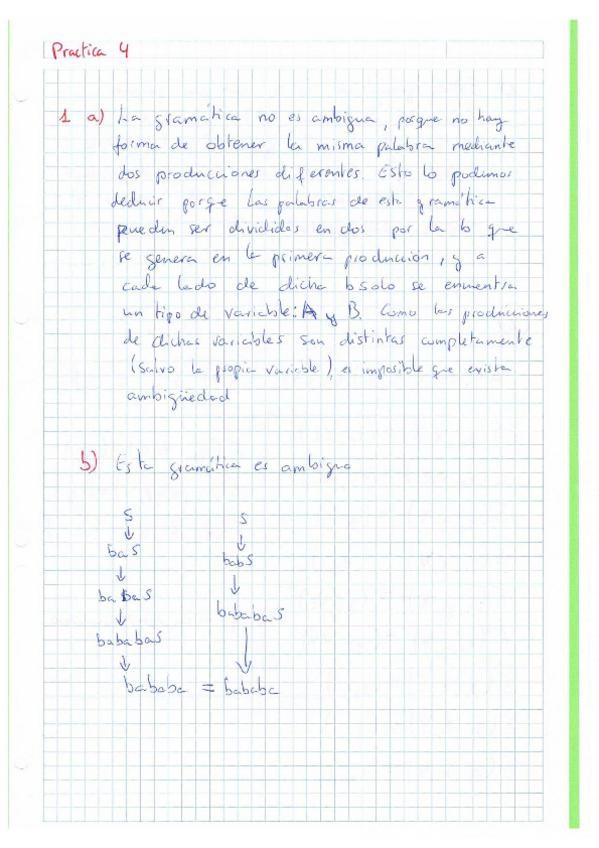 Practica 4
1 a) La gramática no es ambigua, porque no hay
forma de obtener la misma palabra mediante
dos producciones diferentes. Esto lo podemos
deducir porque las palabras de esta gramática
pueden ser divididas en dos por la b que
se genera en la primera producción, y a
cada lado de dicha b solo se encuentra
un tipo de variable: A y B. Como las producciones
de dichas variables son distintas completamente
(salvo la propia variable), es imposible que exista
ambigüedad
b) Esta gramática es ambigua
S S
↓ ↓
baS babS
↓ ↓
babaS bababaS
↓ ↓
bababaS
↓
bababa = bababa